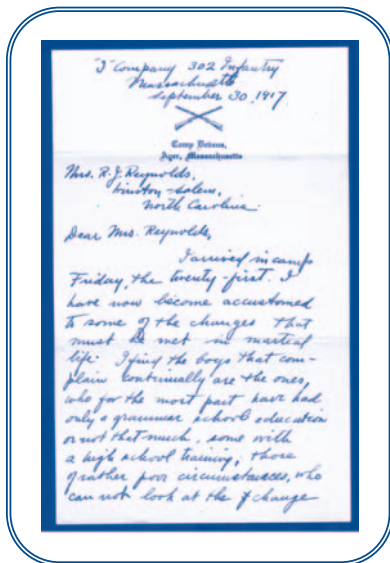 "I" Company 302 Infantry
Massachusetts
September 30, 1917.
Camp Devens,
Ayer, Massachusetts
Mrs. R. J. Reynolds,
Winston-Salem,
North Carolina.
Dear Mrs. Reynolds,
I arrived in camp
Friday, the twenty-first. I
have now become accustomed
to some of the changes that
must be met in martial
life. I find the boys that com-
plain continually are the ones,
who for the most part have had
only a grammar school education
or not that much, some with
a high school training; those
of rather poor circumstances, who
can not look at the change